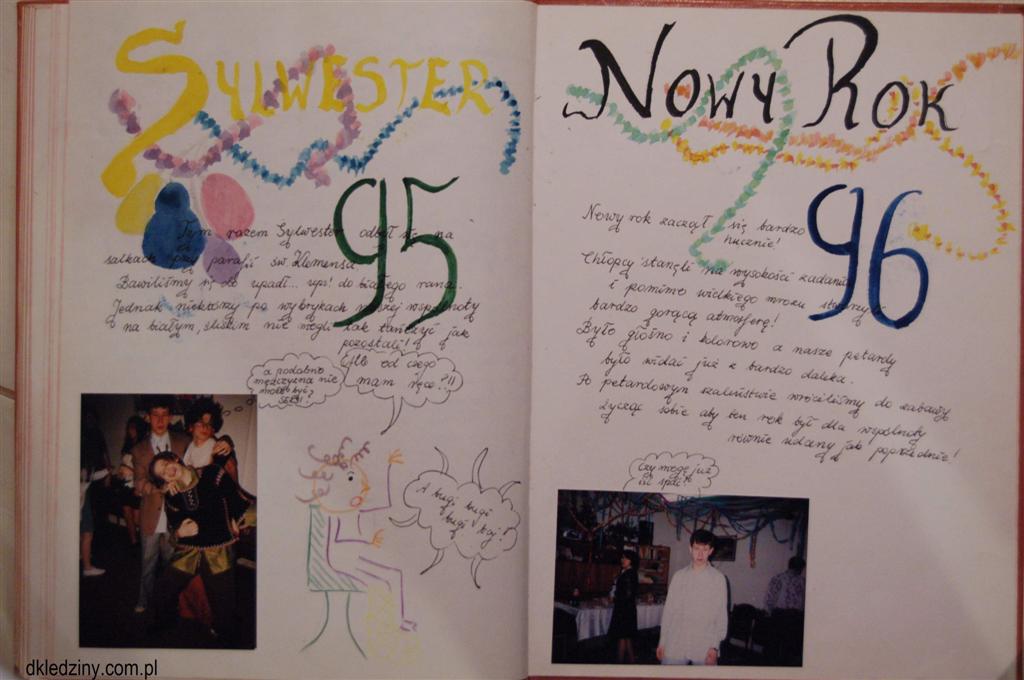 SYLWESTER
95
Tym razem Sylwester odbył się na
salkach przy parafii św. Klemensa.
Bawiliśmy się do upadł... ups! do białego rana.
Jednak niektórzy po wybrykach naszej wspólnoty
na białym, śliskim nie mogli tak tańczyć jak
pozostali!
a podobno
mężczyzna nie
może być
SEXI!
Ale od czego
mam ręce?!!
A bugi bugi
bugi baj!
NOWY ROK
96
Nowy rok zaczął się bardzo
hucznie!
Chłopcy stanęli na wysokości zadania
i pomimo wielkiego mrozu stworzyli
bardzo gorącą atmosferę!
Było głośno i kolorowo a nasze petardy
było widać już z bardzo daleka.
Po petardowym szaleństwie wróciliśmy do zabawy
życząc sobie aby ten rok był dla wspólnoty
równie udany jak poprzednie!
Czy mogę już
iść spać?
dkledziny.com.pl